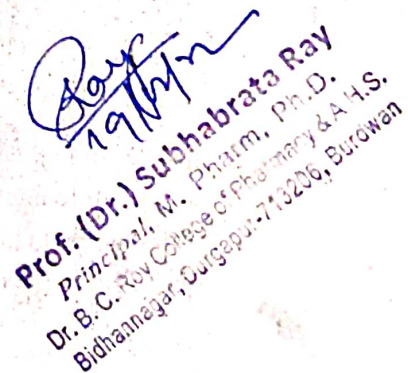 Ray
Prof. (Dr.) Subhabrata Ray
Principal, M. Pharm, Ph.D.
Dr. B. C. Roy College of Pharmacy & A.H.S.
Bidhannagar, Durgapur-713206, Burdwan